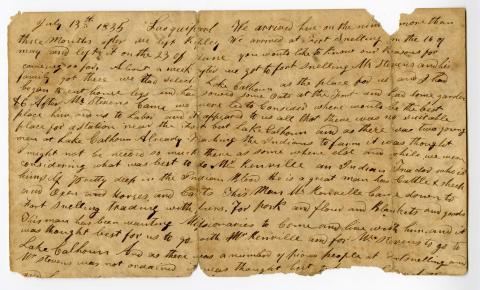 July 13th 1835 Lacquiparl We arrived here on the nin more than
three Months after we left Kinley We arrived at Fort Snelling on the 16 of
may and left it on the 23 of June you would like to know our reasons for
coming so far. About a week after we got to fort Snelling Mr Stevens and his
family got there we had selec Lake Calhoun as the place for us and I had
began to cut house logs and had sowed some oats at the fort and had some garden
&c After Mr Stevens Came we were led to Consider where would be the best
place him and us to Labor and it appeared to us all that there was no suitable
place for a station near the but Lake Calhoun and as there was two young
men at Lake Calhoun Already teaching the Indians to farm it was thought
might not be needed as much there as some where else and while we were
considering what was best to do Mr Renville an Indian Trador who is
himself pretty deep in the Indian blood he is a great man has Cattle & sheep
and Oxen and horses, and This Man Mr Renville came down to
Fort Snelling trading with furs. For pork and flour and Blankets and goods
This man has been wanting Missionaries to Come and live with him and it
was thought best for us to go with Mr Renville and for Mr Stevens to go to
Lake Calhoun And as there was a number of pious people at Snelling and
Mr Stevens was not ordained it was thought best
and